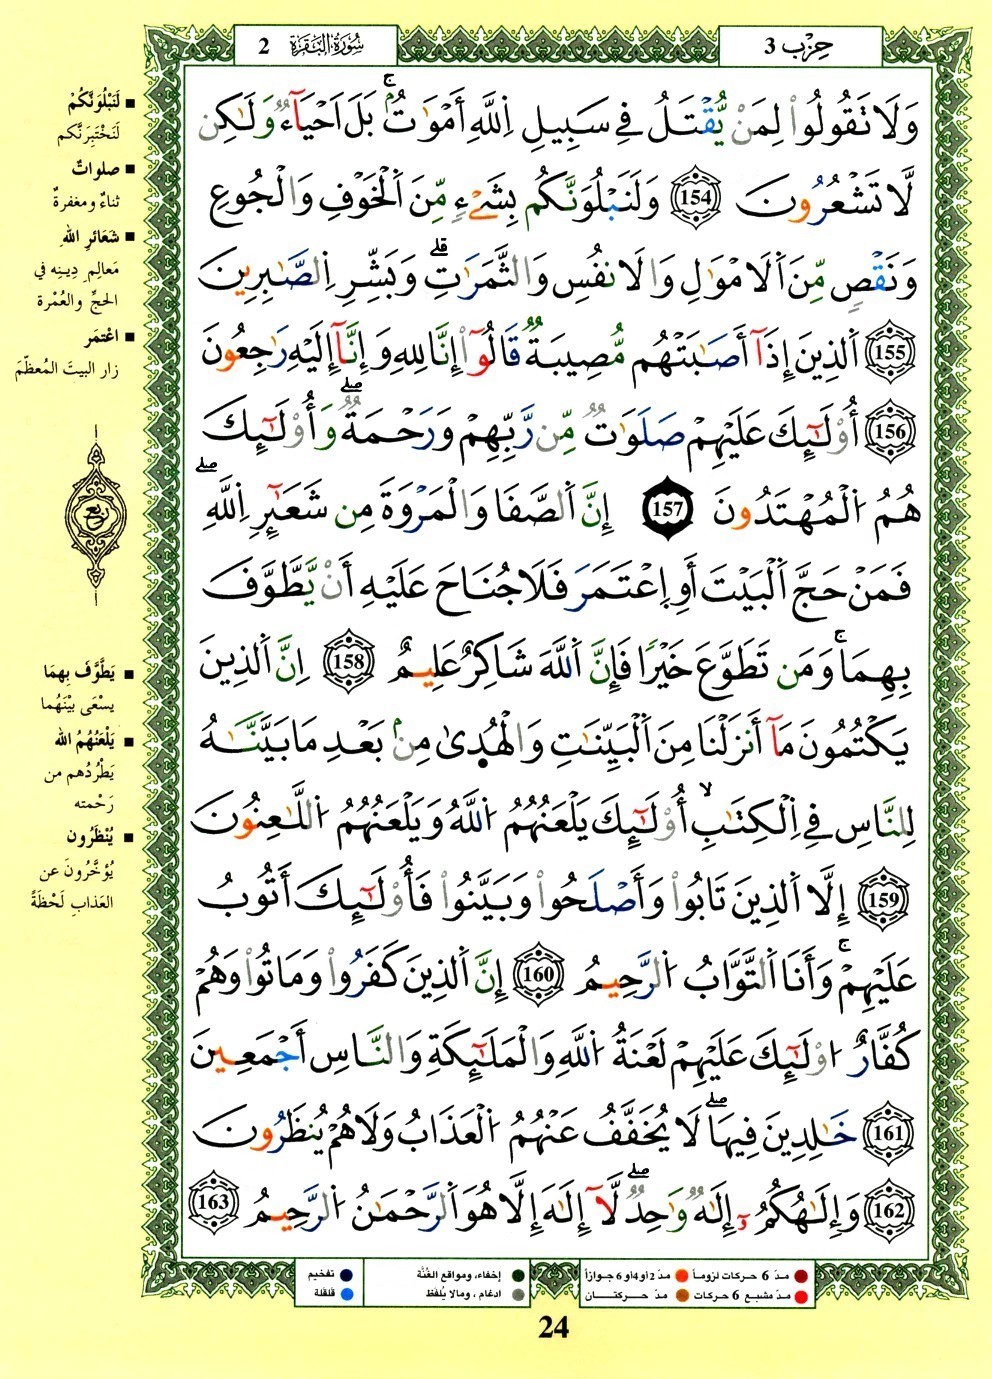 حِزْب 3
سُورَةُ البَقَرَة 2
وَلَا تَقُولُوا۟ لِمَنْ يُّقْتَلُ فِے سَبِيلِ اِ۬للَّهِ أَمْوَٰتُۢ بَلَ اَحْيَآءٌ وَلَٰكِن
لَّا تَشْعُرُونَ 154 وَلَنَبْلُوَنَّكُم بِشَےْءٖ مِّنَ اَ۬لْخَوْفِ وَالْجُوعِ
وَنَقْصٖ مِّنَ اَ۬لَامْوَٰلِ وَالَانفُسِ وَالثَّمَرَٰتِۖ وَبَشِّرِ اِ۬لصَّٰبِرِينَ
155 اَ۬لذِينَ إِذَآ أَصَٰبَتْهُم مُّصِيبَةٌ قَالُوٓا۟ إِنَّا لِلهِ وَإِنَّآ إِلَيْهِ رَٰجِعُونَ
156 أُوْلَٰٓئِكَ عَلَيْهِمْ صَلَوَٰتٌ مِّن رَّبِّهِمْ وَرَحْمَةٌۖ وَأُوْلَٰٓئِكَ
هُمُ اُ۬لْمُهْتَدُونَ 157 إِنَّ اَ۬لصَّفَا وَالْمَرْوَةَ مِن شَعَٰٓئِرِ اِ۬للَّهِۖ
فَمَنْ حَجَّ اَ۬لْبَيْتَ أَوِ اِ۪عْتَمَرَ فَلَا جُنَاحَ عَلَيْهِ أَنْ يَّطَّوَّفَ
بِهِمَاۚ وَمَن تَطَوَّعَ خَيْرٗا فَإِنَّ اَ۬للَّهَ شَاكِرٌ عَلِيمٌ 158 اِنَّ اَ۬لذِينَ
يَكْتُمُونَ مَآ أَنزَلْنَا مِنَ اَ۬لْبَيِّنَٰتِ وَالْهُد۪ىٰ مِنۢ بَعْدِ مَا بَيَّنَّٰهُ
لِلنَّاسِ فِے اِ۬لْكِتَٰبِ أُوْلَٰٓئِكَ يَلْعَنُهُمُ اُ۬للَّهُ وَيَلْعَنُهُمُ اُ۬للَّٰعِنُونَ
159 إِلَّا اَ۬لذِينَ تَابُوا۟ وَأَصْلَحُوا۟ وَبَيَّنُوا۟ فَأُوْلَٰٓئِكَ أَتُوبُ
عَلَيْهِمْۚ وَأَنَا اَ۬لتَّوَّابُ اُ۬لرَّحِيمُ 160 إِنَّ اَ۬لذِينَ كَفَرُوا۟ وَمَاتُوا۟ وَهُمْ
كُفَّارٌ اُوْلَٰٓئِكَ عَلَيْهِمْ لَعْنَةُ اُ۬للَّهِ وَالْمَلَٰٓئِكَةِ وَالنَّاسِ أَجْمَعِينَ
161 خَٰلِدِينَ فِيهَاۖ لَا يُخَفَّفُ عَنْهُمُ اُ۬لْعَذَابُ وَلَا هُمْ يُنظَرُونَ
162 وَإِلَٰهُكُمُۥٓ إِلَٰهٌ وَٰحِدٌۖ لَّآ إِلَٰهَ إِلَّا هُوَ اَ۬لرَّحْمَٰنُ اُ۬لرَّحِيمُ 163
لَنَبْلُوَنَّكُمْ
لَنَخْتَبِرَنَّكم
صلواتٌ
ثناءٌ ومغفرةٌ
شَعَائرِ اللهِ
مَعالِمِ دِينِه في
الحجِّ والعُمْرة
اعْتمَر
زار البيتَ المُعظّمَ
ربع
يَطَّوَّفَ بِهِمَا
يسْعَى بيْنَهُما
يَلْعَنُهُمُ الله
يَطْرُدُهم من
رَحْمته
يُنْظَرُون
يُؤخَّرُونَ عن
العَذاب لَحْظَةً
مدّ 6 حركات لزوماً
مدّ 2 أو 4 أو 6 جوازاً
مدّ مشبع 6 حركات
مدّ حركتــان
إخفاء، ومواقع الغُنَّة
ادغام ، ومالا يُلفَظ
تفخيم
قلقلة
24